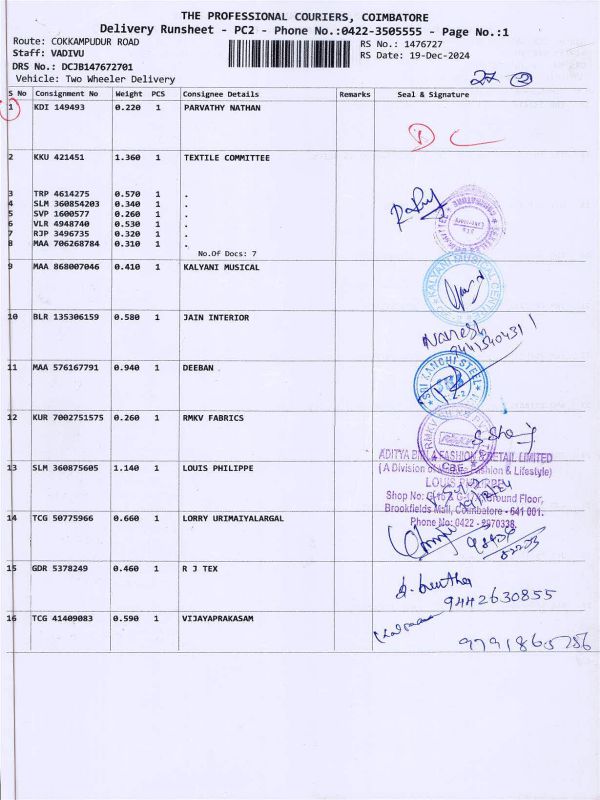 THE PROFESSIONAL COURIERS, COIMBATORE
Delivery Runsheet - PC2 - Phone No.:0422-3505555 - Page No.:1
Route: COKKAMPUDUR ROAD
RS No.: 1476727
Staff: VADIVU
RS Date: 19-Dec-2024
DRS No.: DCJB147672701
Vehicle: Two Wheeler Delivery
27 2
S No Consignment No Weight PCS Consignee Details Remarks Seal & Signature
1 KDI 149493 0.220 1 PARVATHY NATHAN
D C
2 KKU 421451 1.360 1 TEXTILE COMMITTEE
3 TRP 4614275 0.570 1 .
4 SLM 360854203 0.340 1 .
5 SVP 1600577 0.260 1 .
6 VLR 4948740 0.530 1 .
7 RJP 3496735 0.320 1 .
8 MAA 706268784 0.310 1 .
No.Of Docs: 7
9 MAA 868007046 0.410 1 KALYANI MUSICAL
KALYANI MUSICAL CENTRE
10 BLR 135306159 0.580 1 JAIN INTERIOR
Naresh
11 MAA 576167791 0.940 1 DEEBAN
SRI KANCHI STEEL
12 KUR 7002751575 0.260 1 RMKV FABRICS
RMKV
CBE
ADITYA BIRLA FASHION & RETAIL LIMITED
13 SLM 360875605 1.140 1 LOUIS PHILIPPE
(A Division of Fashion & Lifestyle)
LOUIS PHILIPPE
Shop No: Ground Floor,
Brookfields Mall, Coimbatore - 641 001.
14 TCG 50775966 0.660 1 LORRY URIMAIYALARGAL
Phone No: 0422 -
15 GDR 5378249 0.460 1 R J TEX
9442630855
16 TCG 41409083 0.590 1 VIJAYAPRAKASAM